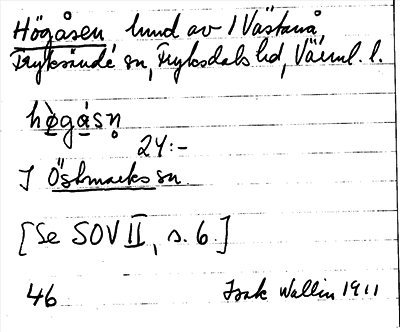 Högåsen hmd av 1 Västanå,
Fryksände sn, Fryksdals hd, Värml. l.
hø̀gásn̥
24:-
I Östmarks sn.
[Se SOV II, s. 6.]
46 Isak Wallin 1911